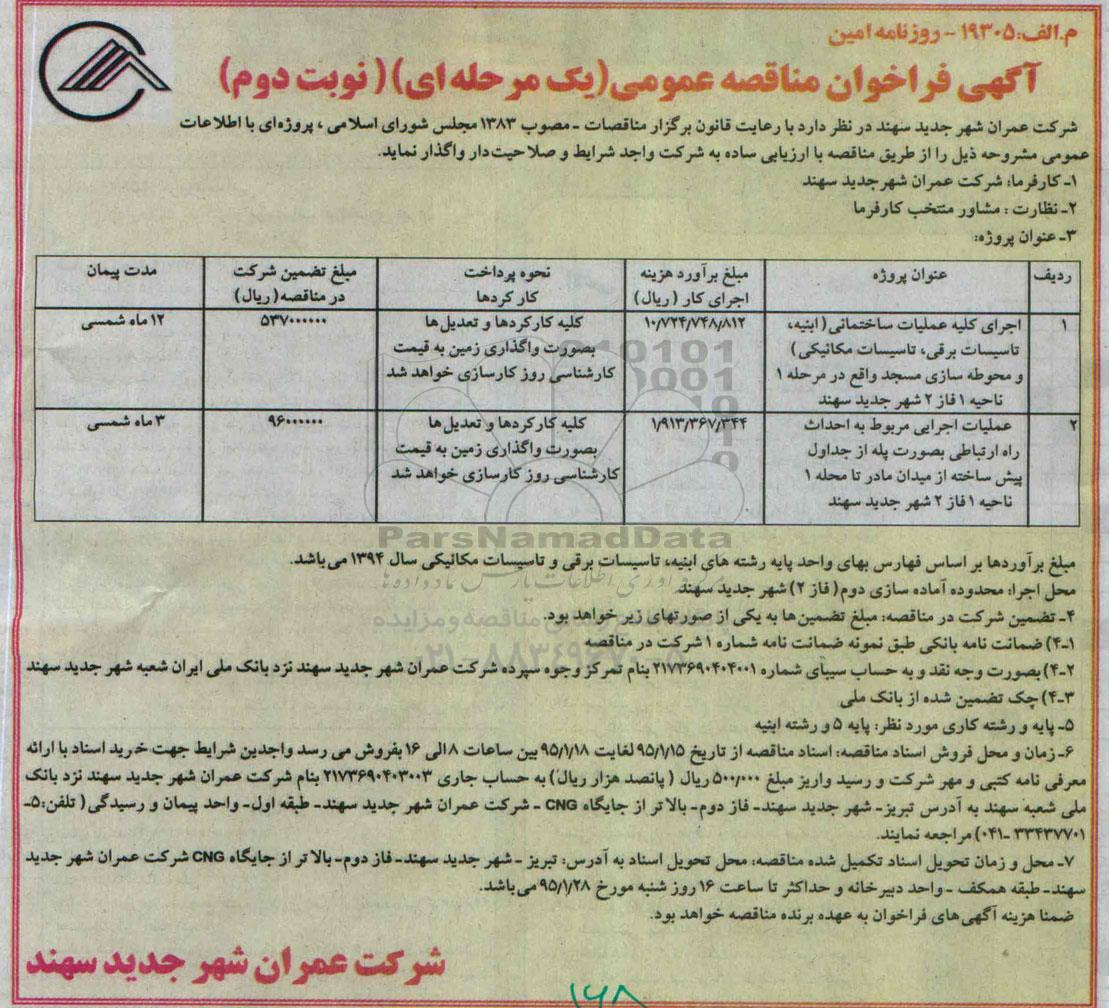 م.الف:۱۹۳۰۵ - روزنامه امین
آگهی فراخوان مناقصه عمومی(یک مرحله ای) ( نوبت دوم)
شرکت عمران شهر جدید سهند در نظر دارد با رعایت قانون برگزار مناقصات - مصوب ۱۳۸۳ مجلس شورای اسلامی ، پروژه‌ای با اطلاعات
عمومی مشروحه ذیل را از طریق مناقصه با ارزیابی ساده به شرکت واجد شرایط و صلاحیت‌دار واگذار نماید.
۱ـ کارفرما: شرکت عمران شهرجدید سهند
۲ـ نظارت : مشاور منتخب کارفرما
۳ـ عنوان پروژه:
ردیف
عنوان پروژه
مبلغ برآورد هزینه
اجرای کار ( ریال)
نحوه پرداخت
کار کردها
مبلغ تضمین شرکت
در مناقصه( ریال)
مدت پیمان
۱
اجرای کلیه عملیات ساختمانی( ابنیه،
تاسیسات برقی، تاسیسات مکانیکی)
و محوطه سازی مسجد واقع در مرحله ۱
ناحیه ۱ فاز ۲ شهر جدید سهند
۱۰/۷۲۴/۷۴۸/۸۱۲
کلیه کارکردها و تعدیل‌ها
بصورت واگذاری زمین به قیمت
کارشناسی روز کارسازی خواهد شد
۵۳۷۰۰۰۰۰۰
۱۲ ماه شمسی
۲
عملیات اجرایی مربوط به احداث
راه ارتباطی بصورت پله از جداول
پیش ساخته از میدان مادر تا محله ۱
ناحیه ۱ فاز ۲ شهر جدید سهند
۱/۹۱۳/۳۶۷/۳۴۴
کلیه کارکردها و تعدیل‌ها
بصورت واگذاری زمین به قیمت
کارشناسی روز کارسازی خواهد شد
۹۶۰۰۰۰۰۰
۳ ماه شمسی
ParsNamadData
مبلغ برآوردها بر اساس فهارس بهای واحد پایه رشته های ابنیه، تاسیسات برقی و تاسیسات مکانیکی سال ۱۳۹۴ می‌باشد.
محل اجرا: محدوده آماده سازی دوم( فاز ۲) شهر جدید سهند
۴ـ تضمین شرکت در مناقصه: مبلغ تضمین‌ها به یکی از صورتهای زیر خواهد بود.
۴ـ۱) ضمانت نامه بانکی طبق نمونه ضمانت نامه شماره ۱ شرکت در مناقصه
۴ـ۲) بصورت وجه نقد و به حساب سیبای شماره ۲۱۷۳۶۹۰۴۰۴۰۰۱ بنام تمرکز وجوه سپرده شرکت عمران شهر جدید سهند نزد بانک ملی ایران شعبه شهر جدید سهند
۴ـ۳) چک تضمین شده از بانک ملی
۵ـ پایه و رشته کاری مورد نظر: پایه ۵ و رشته ابنیه
۶ـ زمان و محل فروش اسناد مناقصه: اسناد مناقصه از تاریخ ۹۵/۱/۱۵ لغایت ۹۵/۱/۱۸ بین ساعات ۸ الی ۱۶ بفروش می رسد واجدین شرایط جهت خرید اسناد با ارائه
معرفی نامه کتبی و مهر شرکت و رسید واریز مبلغ ۵۰۰/۰۰۰ ریال ( پانصد هزار ریال) به حساب جاری ۲۱۷۳۶۹۰۴۰۳۰۰۳ بنام شرکت عمران شهر جدید سهند نزد بانک
ملی شعبه سهند به آدرس تبریز- شهر جدید سهند- فاز دوم- بالا تر از جایگاه CNG - شرکت عمران شهر جدید سهند- طبقه اول- واحد پیمان و رسیدگی( تلفن:۵ـ
۳۳۴۳۷۷۰۱ -۰۴۱) مراجعه نمایند.
۷ـ محل و زمان تحویل اسناد تکمیل شده مناقصه: محل تحویل اسناد به آدرس: تبریز - شهر جدید سهند- فاز دوم- بالا تر از جایگاه CNG شرکت عمران شهر جدید
سهند- طبقه همکف - واحد دبیرخانه و حداکثر تا ساعت ۱۶ روز شنبه مورخ ۹۵/۱/۲۸ می‌باشد.
ضمنا هزینه آگهی های فراخوان به عهده برنده مناقصه خواهد بود.
شرکت عمران شهر جدید سهند
۱۶۸